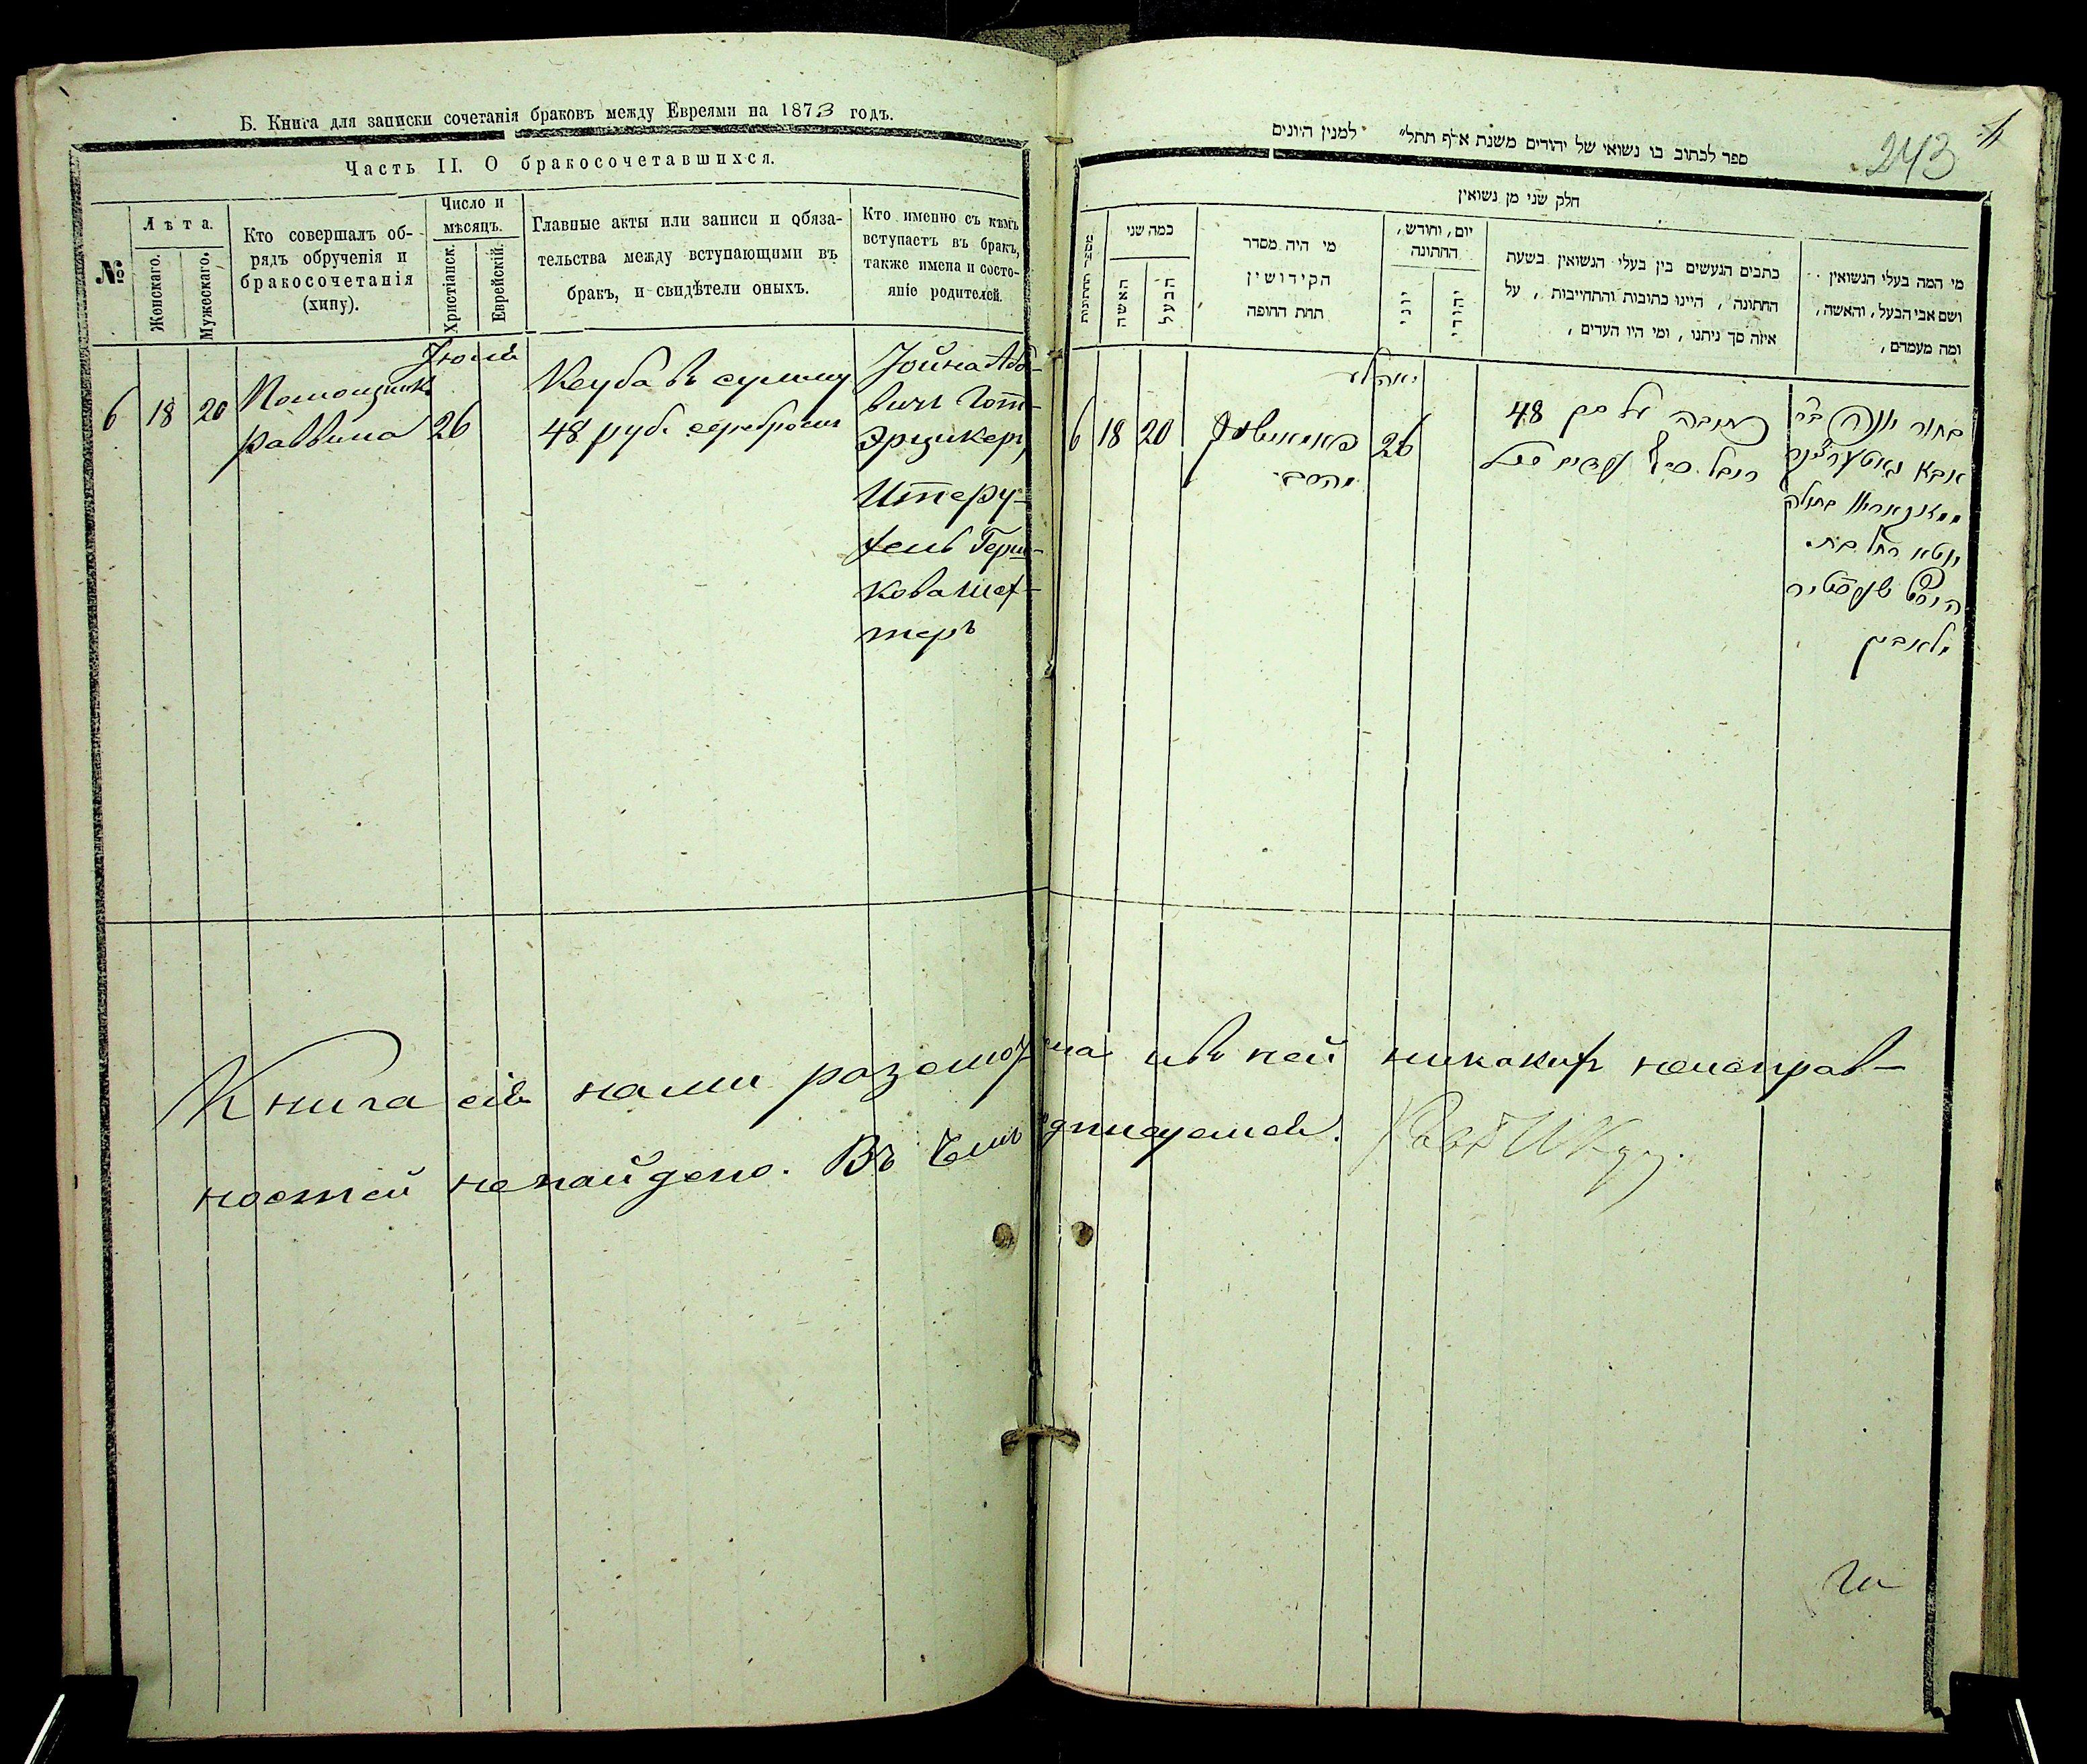 Б. Книга для записки сочетанія браковъ между Евреями на 1873 годъ.
Часть II. О бракосочетавшихся.
№
Лѣта.
Женскаго.
Мужескаго.
Кто совершалъ об-
рядъ обрученія и
бракосочетанія
(хипу).
Число и
мѣсяцъ.
Христіанск.
Еврейскій.
Главные акты или записи и обяза-
тельства между вступающими въ
бракъ, и свидѣтели оныхъ.
Кто именно съ кѣмъ
вступаетъ въ бракъ,
также имена и состо-
яніе родителей.
6
18
20
Помощникъ
раввина
Іюля
26
Кеуба въ сумму
48 руб. серебромъ
Іойна Або-
вичъ Гот-
эрцикеръ,
Итеру-
хель Герш-
кова Шех-
теръ
Книга сія нами разсмотрена и въ ней никакихъ неисправ-
ностей ненайдено. Въ чемъ
243
ספר לכתוב בו נשואי של יהודים משנת אלף תתל״ למנין היונים
חלק שני מן נשואין
מספר החתונות
כמה שני
האשה
הבעל
מי היה מסדר
הקידושין
תחת החופה
יום, וחודש,
החתונה
יווני
יהודי
כתבים הנעשים בין בעלי הנשואין בשעת
החתונה, היינו כתובות והתחייבות, על
איזה סך ניתנו, ומי היו העדים,
מי המה בעלי הנשואין
ושם אבי הבעל, והאשה,
ומה מעמדם,
6
18
20
26
כתובה על סך 48
בחור יונה ב״ר
אבא
בתולה
יוטא רחל בת